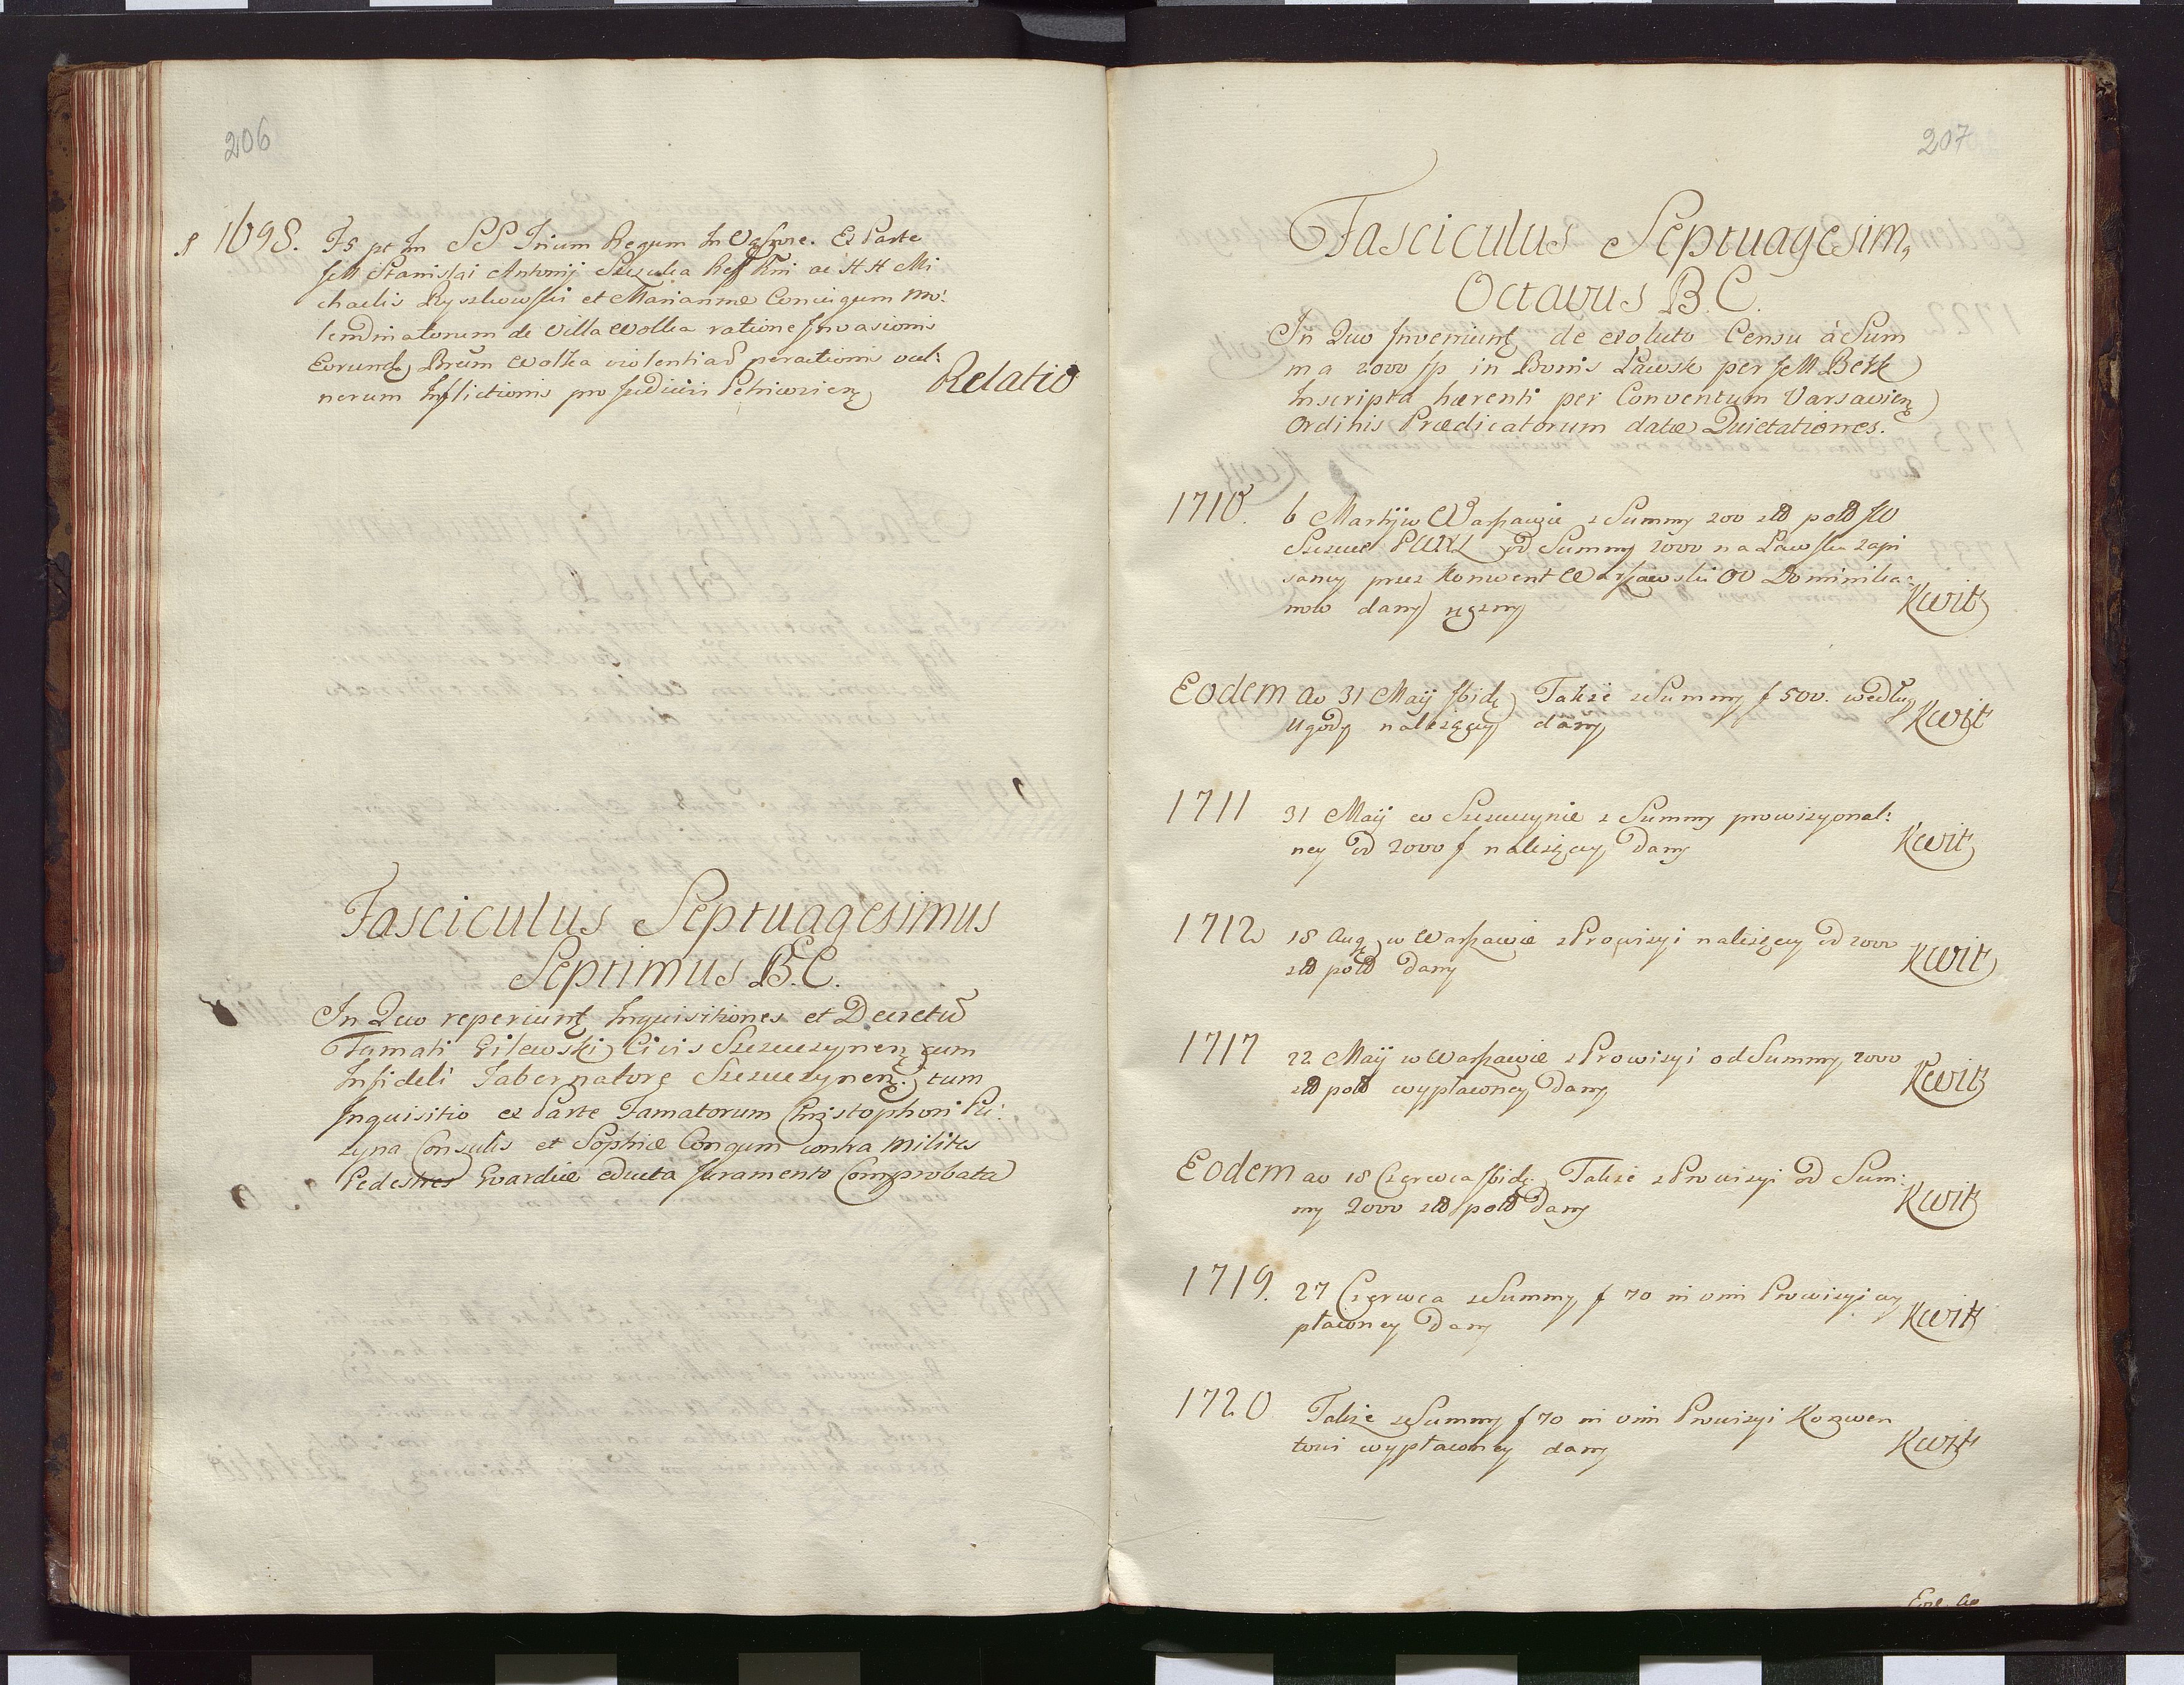 206
1698. Fs pt In SS Trium Regum In Wąsosze. Ex Parte
JeM Stanislai Antonij Szczuka Reff Rni ac HH Mi
chaelis Ryszkowski et Mariannæ Coniugum mo:
lendinatorum de Villa Wolka ratione Invasionis
Eorund Brum Wolka violentias peractionis vul:
nerum Inflictionis pro Judicii
Relatio
Fasciculus Septuagesimus
Septimus B.C.
In Quo reperiunt Inquisitiones et Decretu
Famati Gilewski Civis Szczuczynen cum
Infideli Tabernatore Szczuczynen. tum
Inquisitio ex Parte Famatorum Christophori Pu:
zyna Consulis et Sophiæ Congum contra milites
Pedestres Gvardiæ educta Juramento Comprobata
207
Fasciculus Septuagesim,
Octavus B.C.
In Quo Inveniunt de evoluto Censu à Sum
ma 2000 fp in Bonis Ławsk per JeM Bełk
Inscripta hærenti per Conventum Varsavien
Ordinis Prædicatorum datæ Quietationes.
1710. 6 Martij w Warszawie z Summy 200 zło pols JW
Szczuce PWXL od Summy 2000 na Ławsku zapi
saney przez Konwent Warszawski OO Dominika:
now dany ręczny
Kwit
Eodem Ao 31 Maij Ibid Także z Summy f 500. według
ugody należącey dany
Kwit
1711 31 Maij w Szczuczynie z Summy prowizyonal:
ney od 2000 f należącey dany
Kwit
1712 18 Aug w Warszawie z Prowizyi należącey od 2000
zło pols dany
Kwit
1717 22 Maij w Warszawie z Prowizyi od Summy 2000
zło pols wypłaconey dany
Kwit
Eodem ao 18 Czerwca Ibid Także z Prowizyi od Sum:
my 2000 zło pols dany
Kwit
1719. 27 Czerwca z Summy f 70 in vim Prowizyi wy
płaconey dany
Kwit
1720 Także z Summy f 70 in vim Prowizyi Konwen
towi wypłaconey dany
Kwit